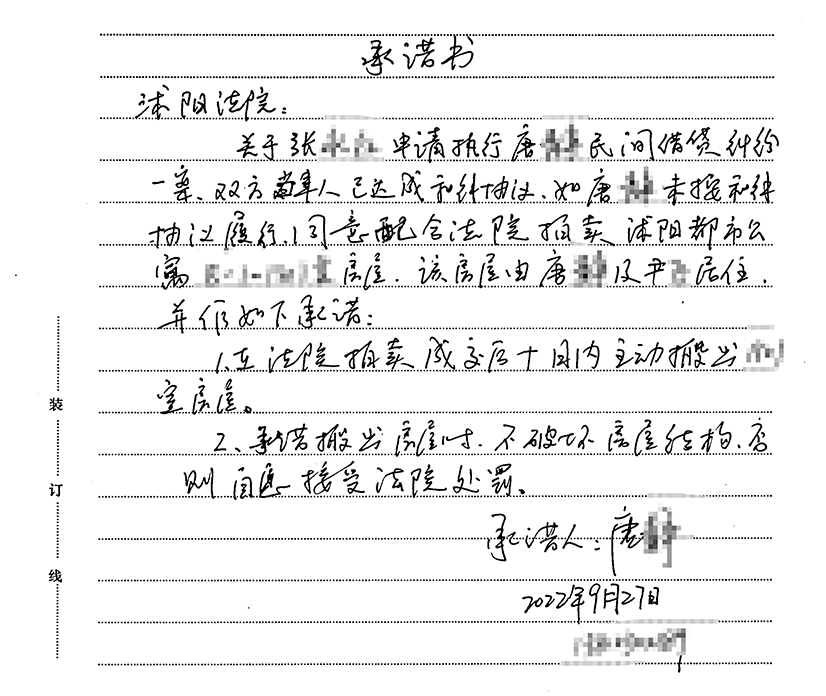 承诺书
沭阳法院：
关于张 申请执行唐 民间借贷纠纷
一案、双方当事人已达成和解协议、如唐 未按和解
协议履行、同意配合法院拍卖沭阳都市公
寓 房屋.该房屋由唐 及尹 居住.
并作如下承诺：
1.在法院拍卖成交后十日内主动搬出
室房屋。
2、承诺搬出房屋时.不破坏房屋结构、否
则自愿接受法院处罚。
承诺人：唐
2022年9月27日
装
订
线